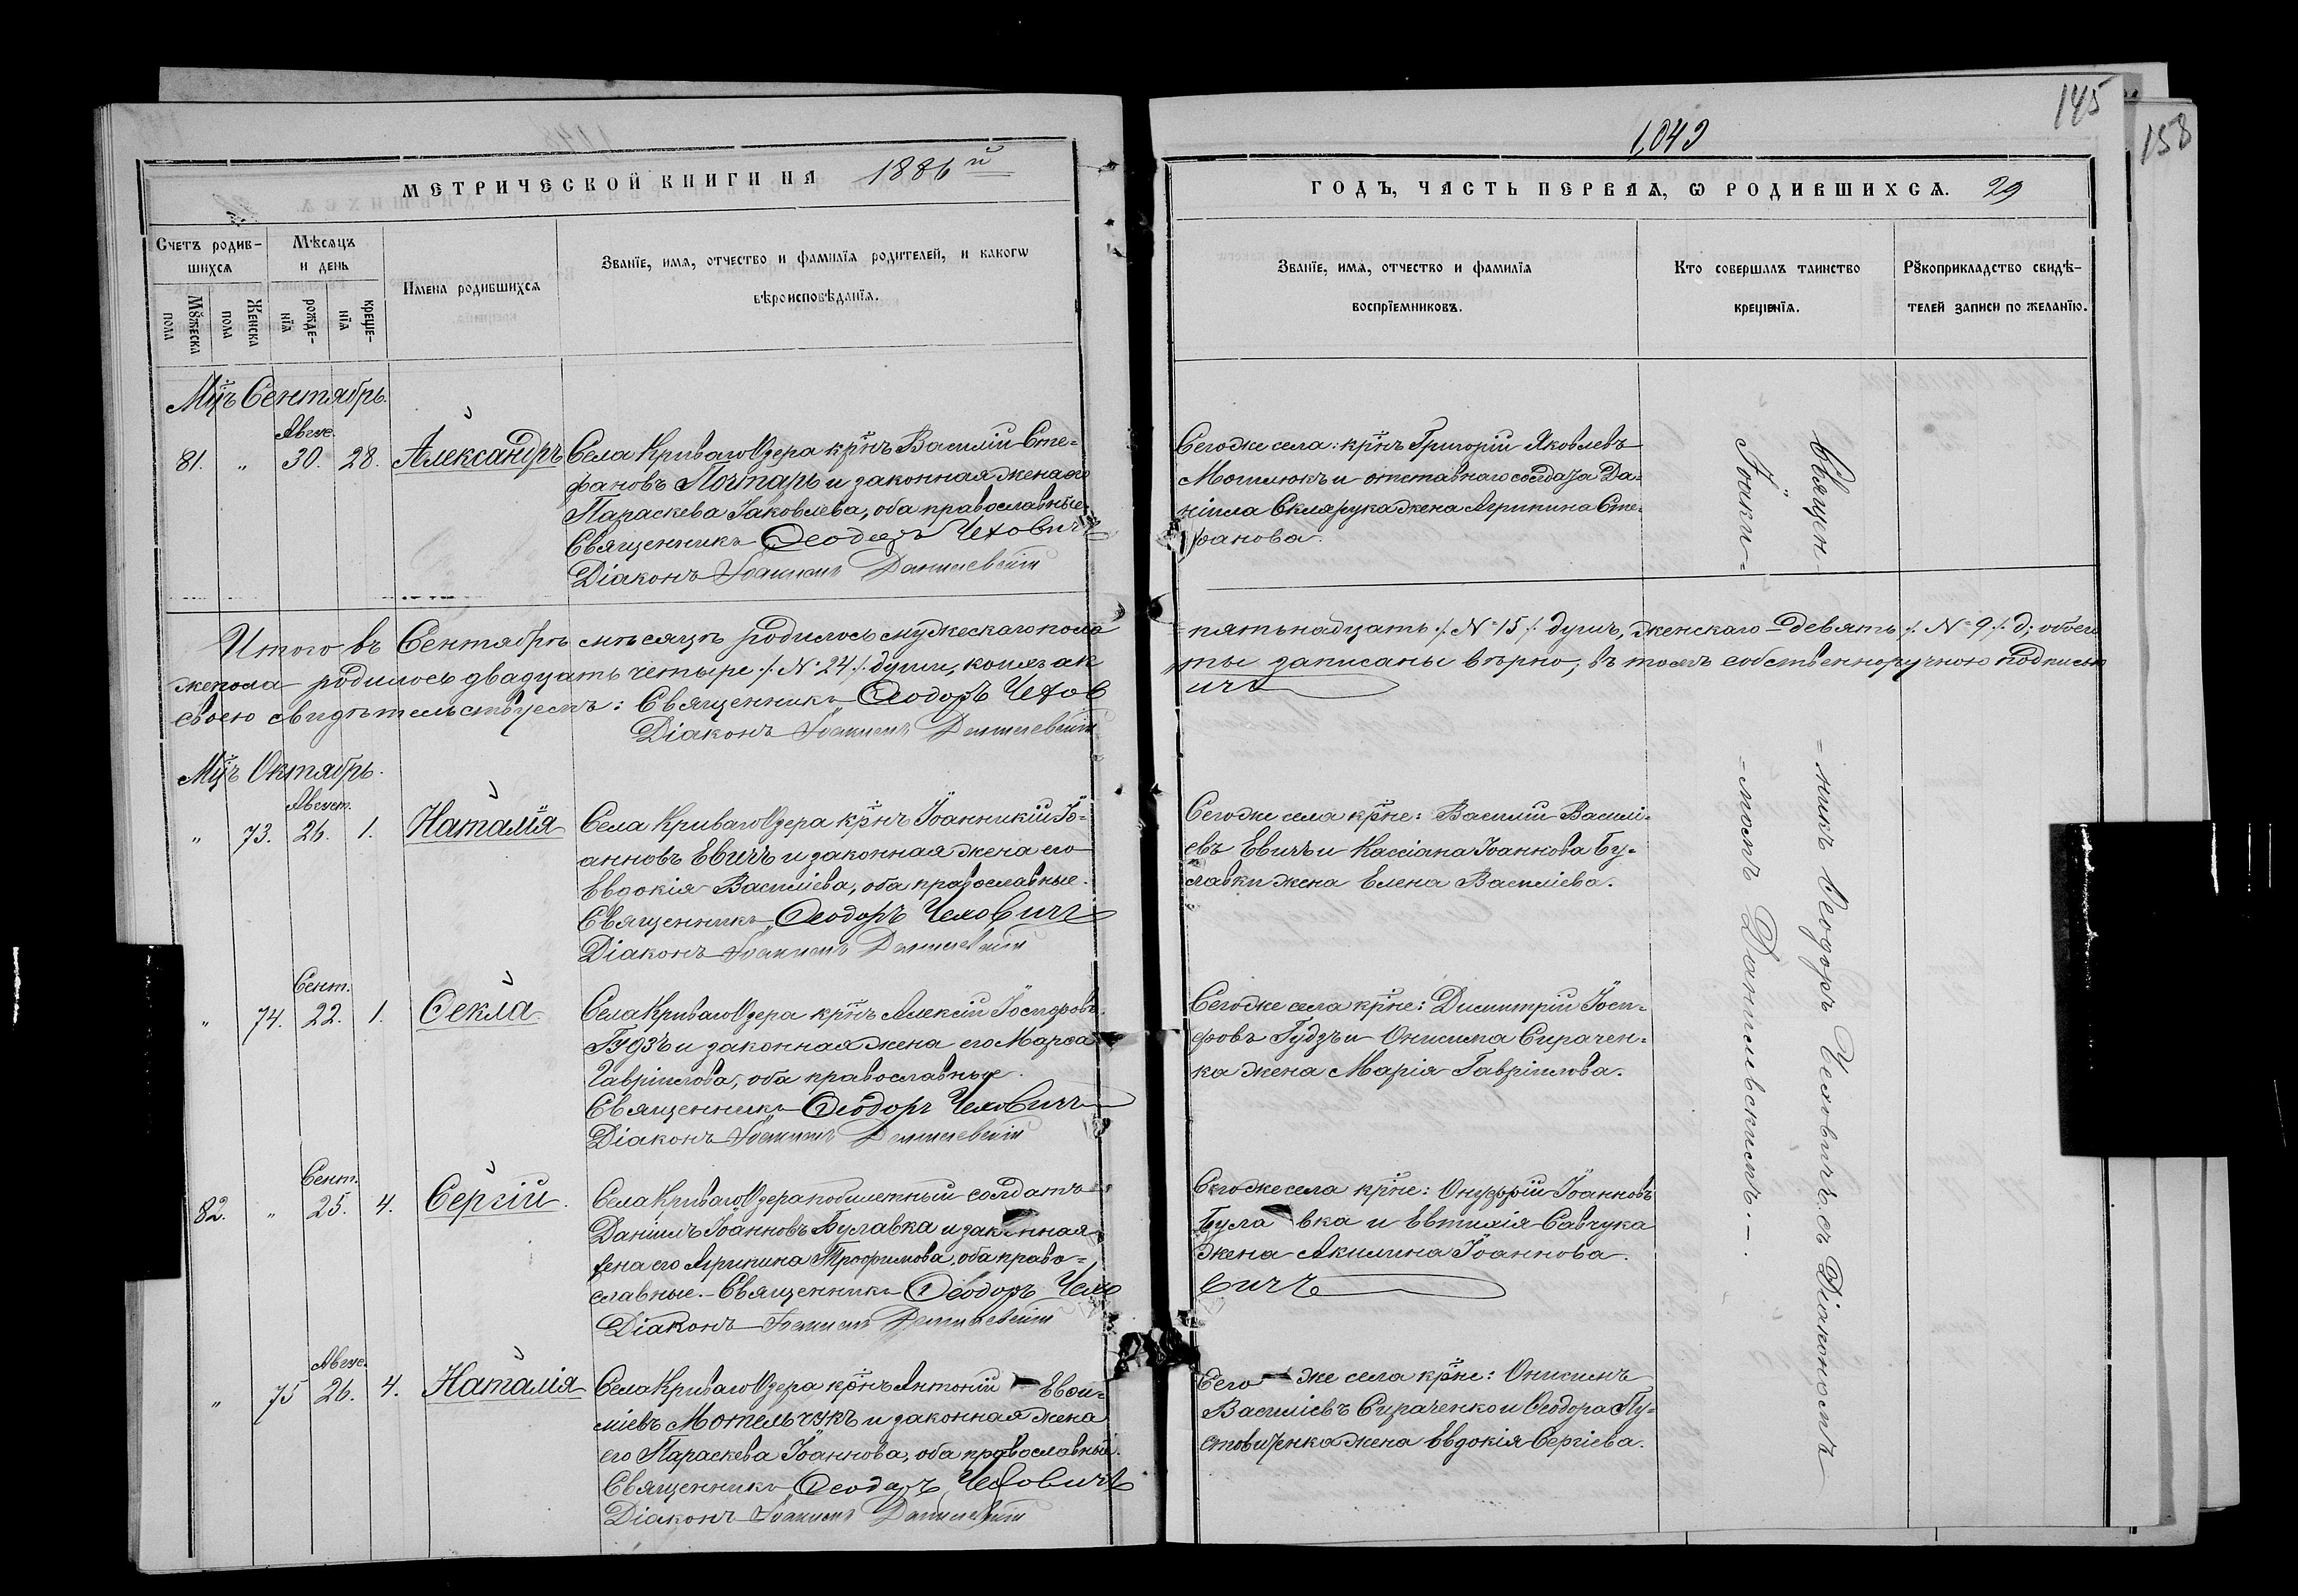 145
158
1,043
МЕТРИЧЕСКОЙ КНИГИ НА 1886й
ГОДЪ, ЧАСТЬ ПЕРВАѦ, Ѡ РОДИВШИХСѦ. 29
Счетъ родив-
шихсѧ
Мꙋжеска
пола
Женска
пола
Мѣсѧцъ
и день
рожде-
нїѧ
креще-
нїѧ
Имена родившихсѧ
Званїе, имѧ, отчество и фамилїѧ родителей, и какогѡ
вѣроисповѣданїѧ.
Званїе, имѧ, отчество и фамилїѧ
воспрїемниковъ.
Кто совершалъ таинство
крещенїѧ.
Рꙋкоприкладство свидѣ-
телей записи по желанїю.
Мцъ Сентябрь.
Авгус.
81. " 30. 28. Александръ
Села Криваго Озера крнъ Василій Сте=
фановъ Почтарь и законная жена его
Параскева Іаковлева, оба православные.
Священникъ Ѳеодоръ Чехович
Діаконъ Іоакимъ Данилевскій
Сегоже села: крнъ Григорій Яковлевъ
и отставнаго солдата Да=
ніила Склярука жена Агрипина Сте=
фанова.
Итого въ Сентябрѣ мѣсяцѣ родилось мужескаго пола
= пятьнадцать ./. № 15 ./. душъ, женскаго – девять ./. № 9 ./. д; обоего
жепола родилось двадцать четыре ./. № 24 ./. души, коихъ ак
ты записаны вѣрно, въ томъ собственноручною подписью
своею свидѣтельствуемъ: Священникъ Ѳеодоръ Чехов
ичъ
Діаконъ Іоакимъ Данилевскій
Мцъ Октябрь.
Август.
" 73. 26. 1. Наталія
Села Криваго Озера крнъ Іоанникій Іо=
анновъ Евичъ и законная жена его
Евдокія Василіева, оба православные.
Священникъ Ѳеодоръ Чехович
Діаконъ Іоакимъ Данилевскій
Сегоже села крне: Василій Василі=
евъ Евичъ и Кассіана Іоаннова Бу=
лавки жена Елена Василіева.
Сент.
" 74. 22. 1. Ѳекла
Села Криваго Озера крнъ Алексій Іосифовъ
Гудзъ и законная жена его Марѳа
Гавріилова, оба православные.
Священникъ Ѳеодоръ Чехович
Діаконъ Іоакимъ Данилевскій
Сегоже села крне: Димитрій Іоси=
фовъ Гудзъ и Онисима Сирачен=
ка жена Марія Гавріилова.
Сент.
82. " 25. 4. Сергій.
Села Криваго Озера побилетный солдатъ
Даніилъ Іоанновъ Булавка и законная
жена его Агрипина Трофимова, оба право=
славные. – Священникъ Ѳеодоръ Чехо
Діаконъ Іоакимъ Данилевскій
Сегоже села крне: Онуфрій Іоанновъ
Була вка и Евтихія Савчука
жена Акилина Іоаннова.
вичъ
Авгус.
" 75 26. 4. Наталія
Села Криваго Озера крнъ Антоній Евѳи=
міевъ Мотельчукъ и законная жена
его Параскева Іоаннова, оба православные.
Священникъ Ѳеодоръ Чехович
Діаконъ Іоакимъ Данилевскій
Сего же села крне: Онисимъ
Василіевъ Сираченко и Ѳеодора Пу=
стовитенка жена Евдокія Сергіева.
Священ=
=никъ Ѳеодоръ Чеховичъ съ Діакономъ
Іоаки=
=момъ Данилевскимъ. –